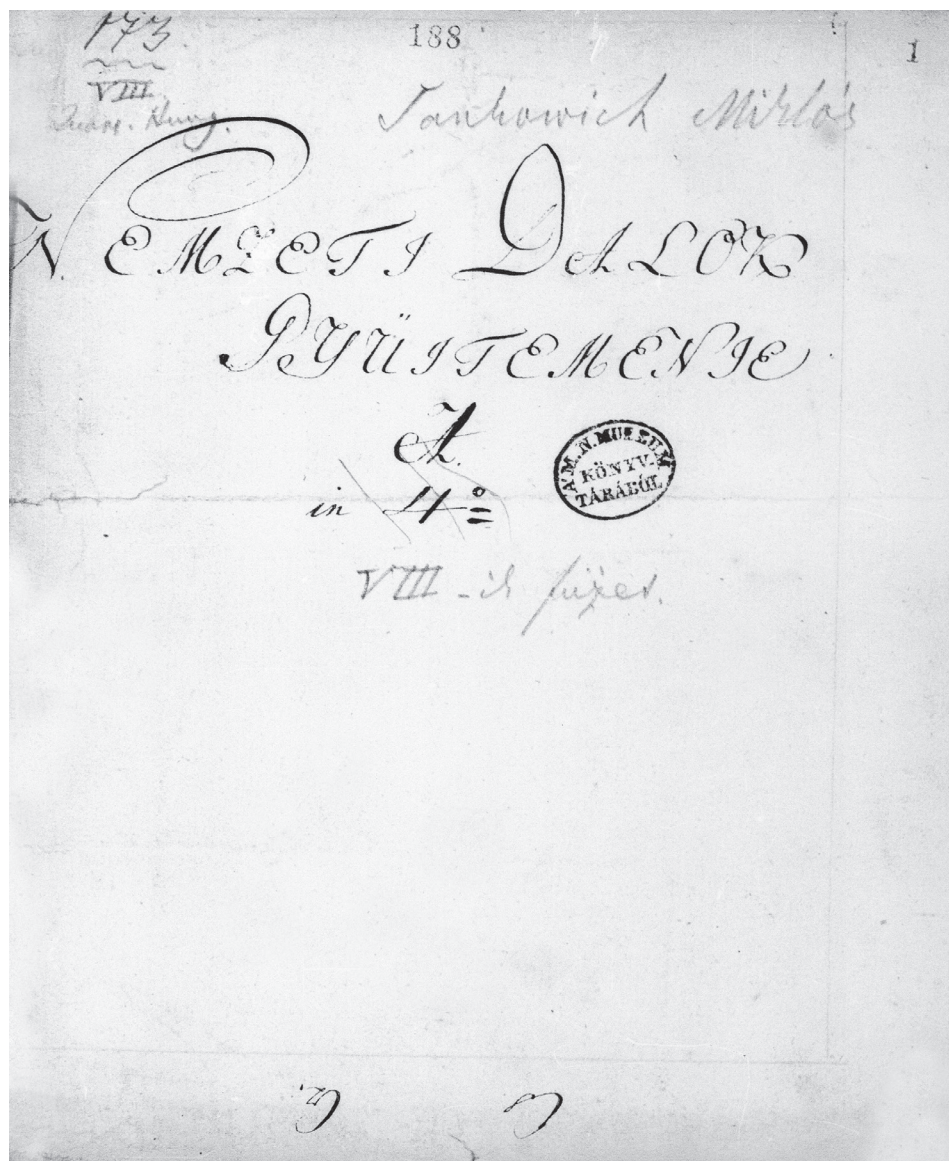 173 188 1
VIII
Quart. Hung. Jankowich Miklós
NEMZETI DALOK
GYÜITEMENIE
A.
in 4º
A M. N. MUZEUM
KÖNYV-
TÁRÁBÓL
VIII-ik füzet.